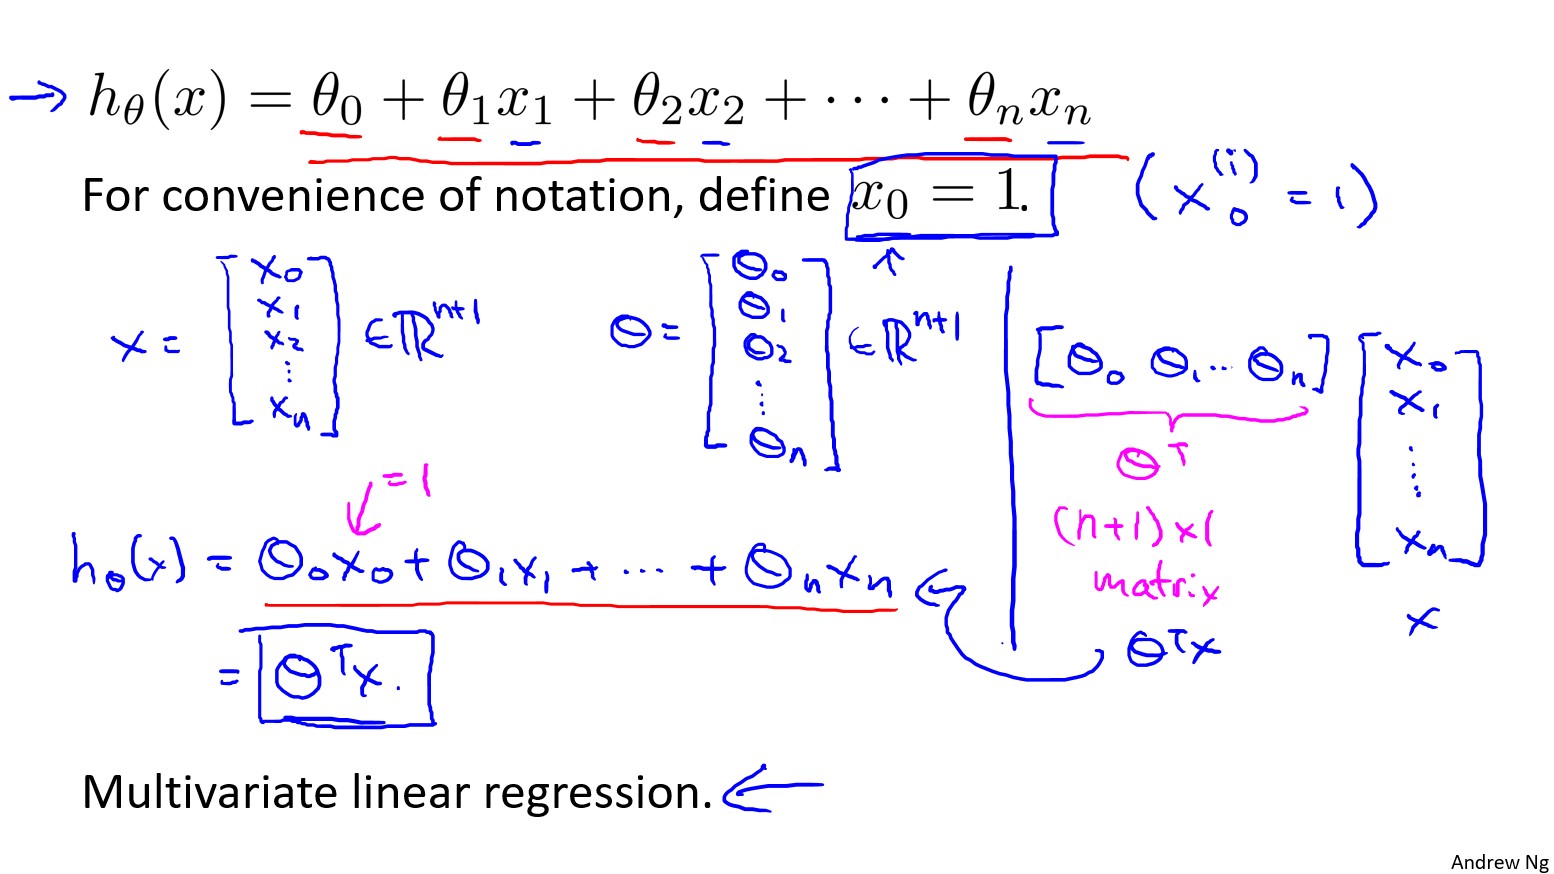 → hθ(x) = θ0 + θ1x1 + θ2x2 + ⋯ + θnxn
For convenience of notation, define x0 = 1. (x0^(i) = 1)
x = [x0 x1 x2 ⋮ xn] ∈ ℝ^(n+1)
θ = [θ0 θ1 θ2 ⋮ θn] ∈ ℝ^(n+1)
[θ0 θ1 ... θn] [x0 x1 ⋮ xn]
θ^T
(n+1) x 1
matrix
x
θ^T x
= 1
hθ(x) = θ0x0 + θ1x1 + ⋯ + θnxn
= θ^T x.
Multivariate linear regression. ←
Andrew Ng